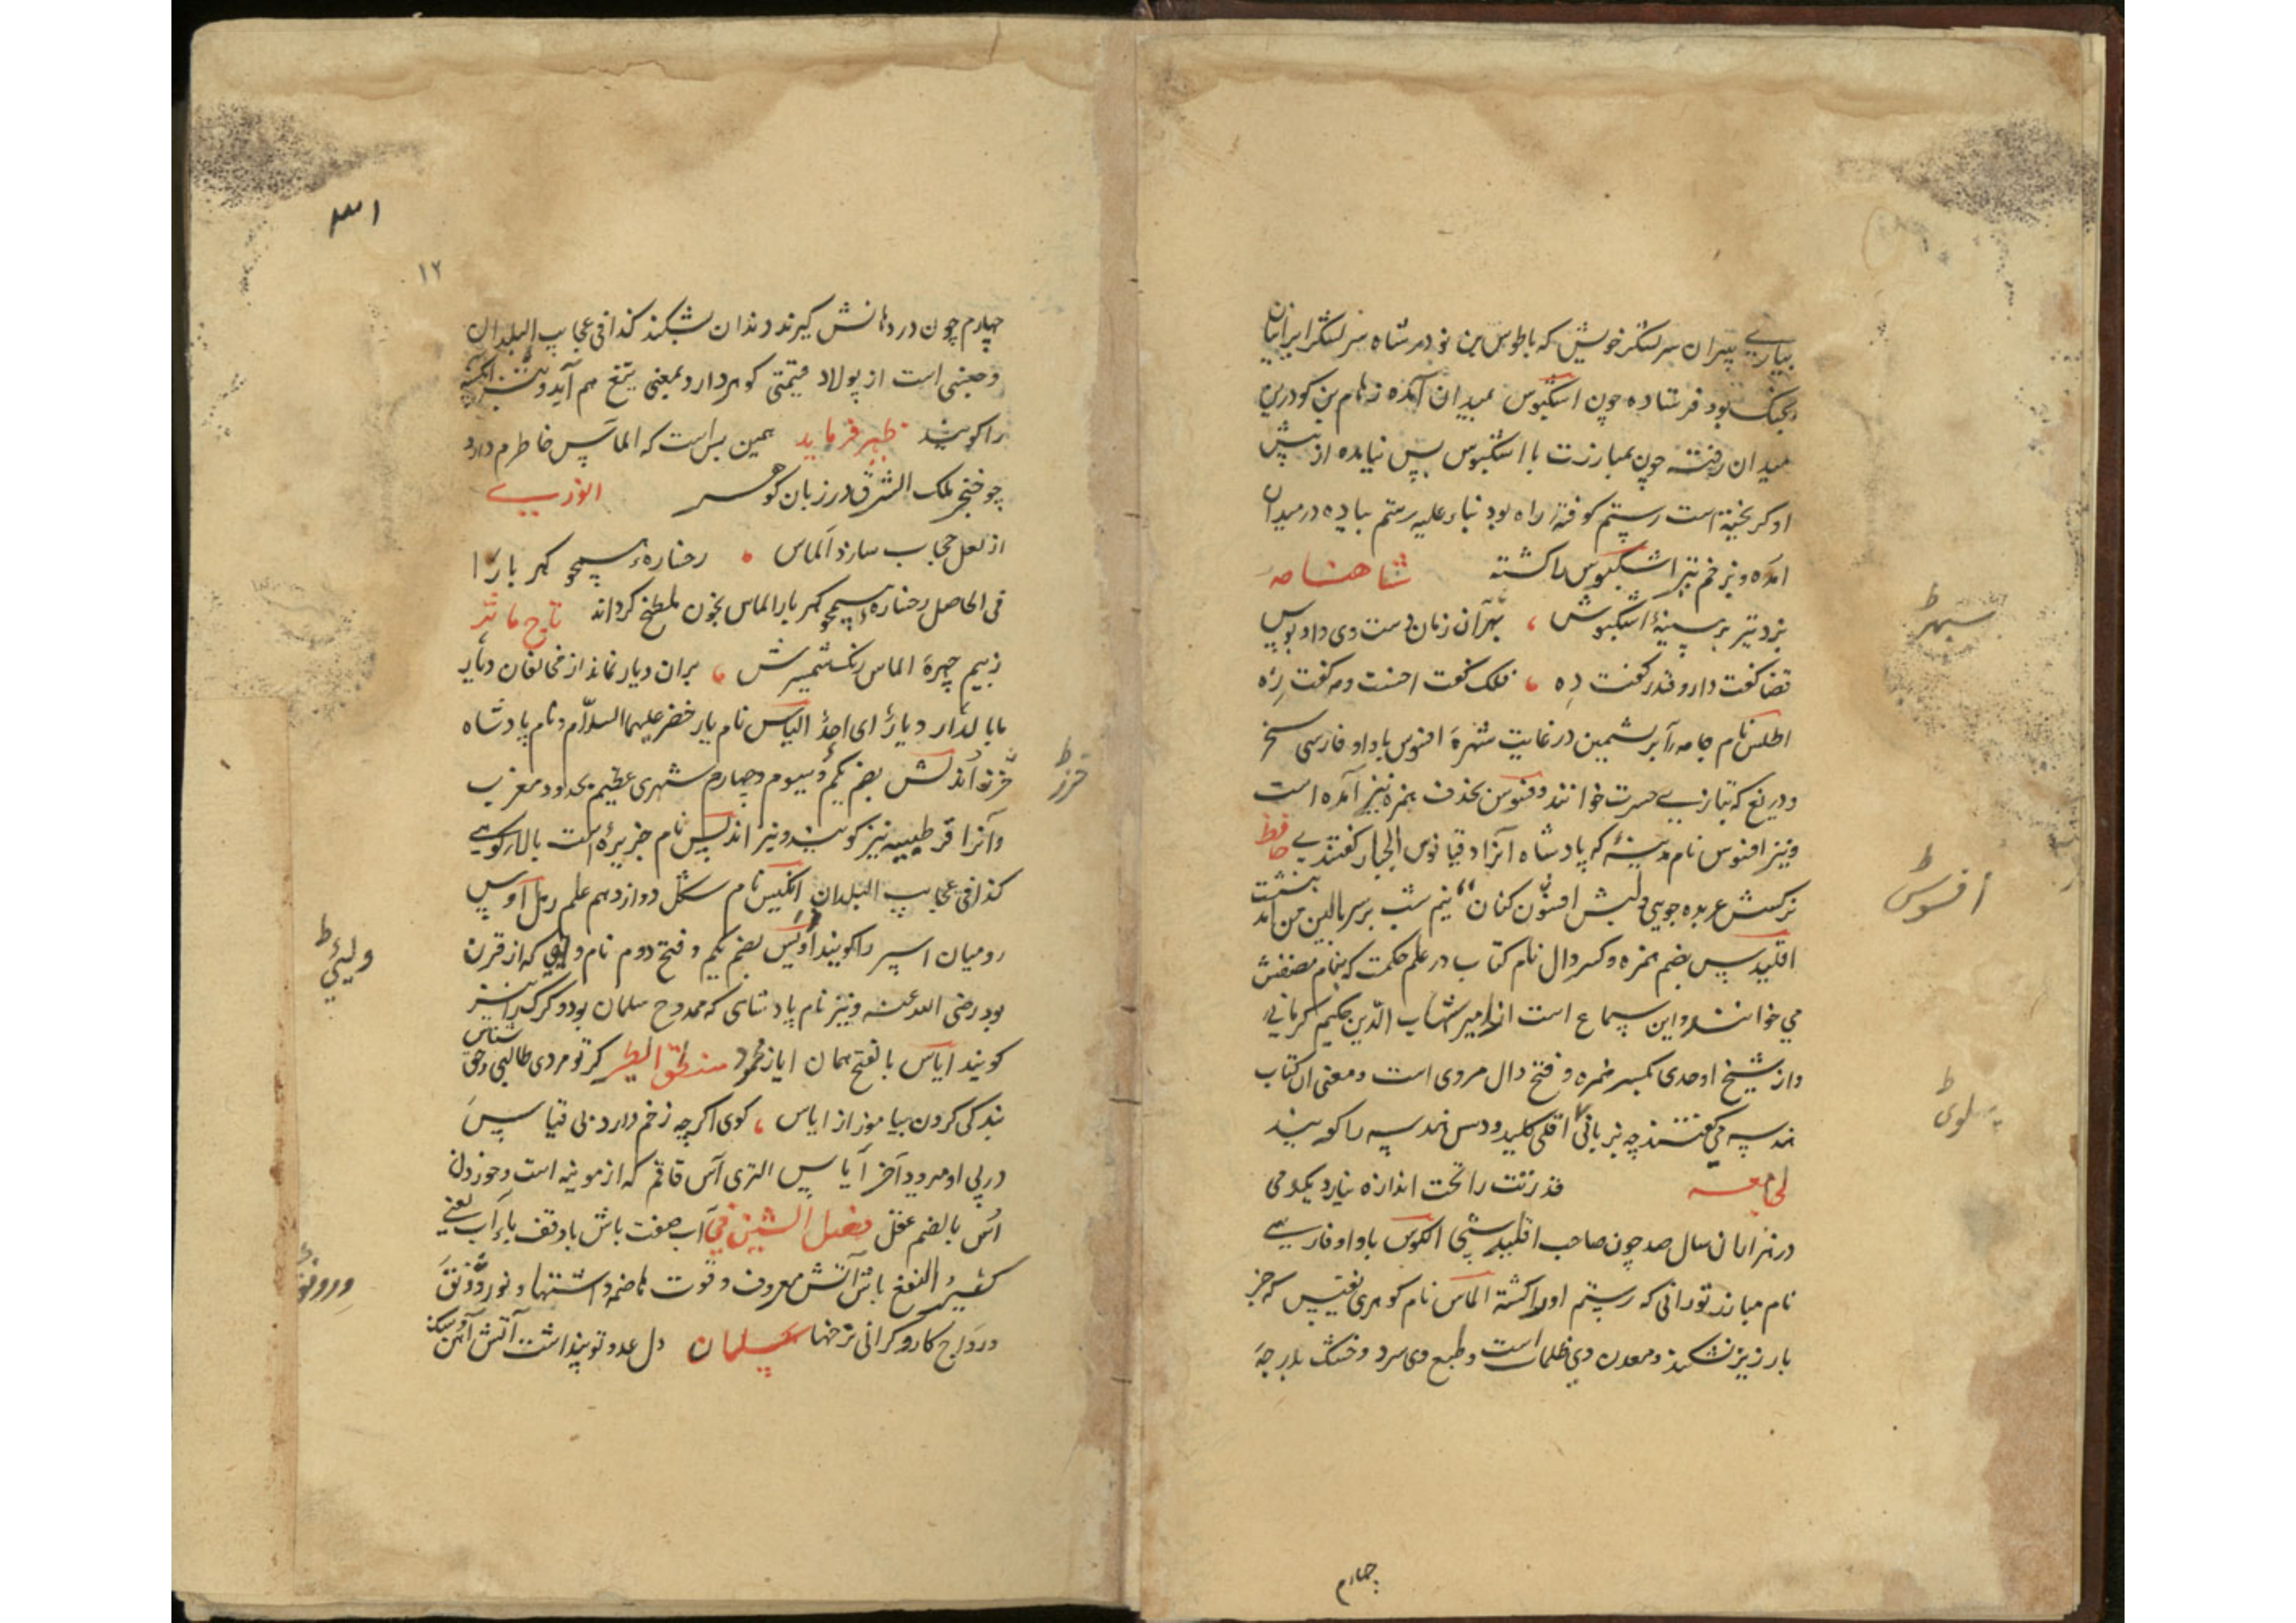 بیاری پیران سر لشکر خویش که با طوس بن نوذر شاه سر لشکر ایرانیان
بجنگ بود فرستاده چون اشکبوس بمیدان آمده رهام بن گودرز
میدان رفته چون بمبارزت با اشکبوس بس نیامده از پیش
او گریخته است رستم کوفته راه بود بناء علیه رستم پیاده در میدان
آمده و بزخم تیر اشکبوس را کشته شاهنامه
بزد تیر بر سینهٔ اشکبوس سپهر آن زمان دست وی داد بوس
قضا گفت دار و قدر گفت ده فلک گفت احسنت و مه گفت زه
اطلس نام جامه ابریشمین در غایت شهره افسوس با واو فارسی سخر
و دریغ که بتازیی حسرت خوانند و فسوس بحذف همزه نیز آمده است
و نیز افسوس نام مدینهٔ که پادشاه آنرا دقیانوس الجبار گفتندی حافظ
نرگسش عربده جوی و لبش افسوس کنان نیم شب بر سر بالین من آمد بنشست
اقلیدس بضم همزه و کسر دال نام کتاب در علم حکمت که بنام مصنفش
می خوانند و این سماع است از امیر شهاب الدین حکیم کرمانی
و از شیخ اوحدی بکسر همزه و فتح دال مروی است و معنی آن کتاب
هندسه می گفتند چه بزبانی اقلی کلید و دس هندسه را گویند
لجامعه قدرتت را تحت اندازه نیارد یک دمی
در هزاران سال صد چون صاحب اقلیدسی الکوس با واو فارسی
نام مبارز تورانی که رستم او را کشته الماس نام گوهری نفیس که جز
بارزیز نشکند و معدن وی ظلمات است و طبع وی سرد و خشک بدرجه
چهارم
سپهر ط
افسوس ط
پهلوی ط
۱۲
چهارم چون در دهانش گیرند دندان بشکند کذا فی عجایب البلدان
و جنسی است از پولاد قیمتی گوهردار و بمعنی تیغ هم آید و نیز
را گویند ظهیر فرماید همین بس است که الماس خاطرم دارد
چو خنجر ملک الشرق در زبان گوهر انوری
از لعل حجاب سازد الماس رخساره همچو کهربا را
فی الحاصل رخساره همچو کهربا را الماس بخون ملطخ گرداند تاج مآثر
ز بیم چهرهٔ الماس رنگ شمشیرش بران دیار نماند از مخالفان دیار
بابا لدار دیار ای احد الیاس نام یار خضر علیهما السلام و نام پادشاه
خزر اندلس بضم یکم و سیوم و چهارم شهری عظیم بحدود مغرب
و آنرا قرطبیه نیز گویند و نیز اندلس نام جزیره است بالار کوهی
کذا فی عجایب البلدان انکیس نام شکل دوازدهم علم رمل اوس
رومیان اسپر را گویند اویس بضم یکم و فتح دوم نام ولیی که از قرن
بود رضی الله عنه و نیز نام پادشاهی که ممدوح سلمان بود و گرگ را نیز
گویند ایاس بالفتح همان ایاز محمود منطق الطیر گر تو مردی طالبی و حق شناس
بندگی کردن بیاموز از ایاس گوی اگرچه زخم دارد بی قیاس
در پی او میرود آخر ایاس الترکی آس قاقم که از موینه است و خوردن
اس بالضم عقل فصل الشین فی آب صفت باش با وقف باء آب یعنی
کثیر النفع باش آتش معروف و قوت هاضمه و اشتها و نور و رونق
و رواج کار و گرانی نرخها سلمان دل عدو تو پنداشت آتش
خزر ط
ولیی ط